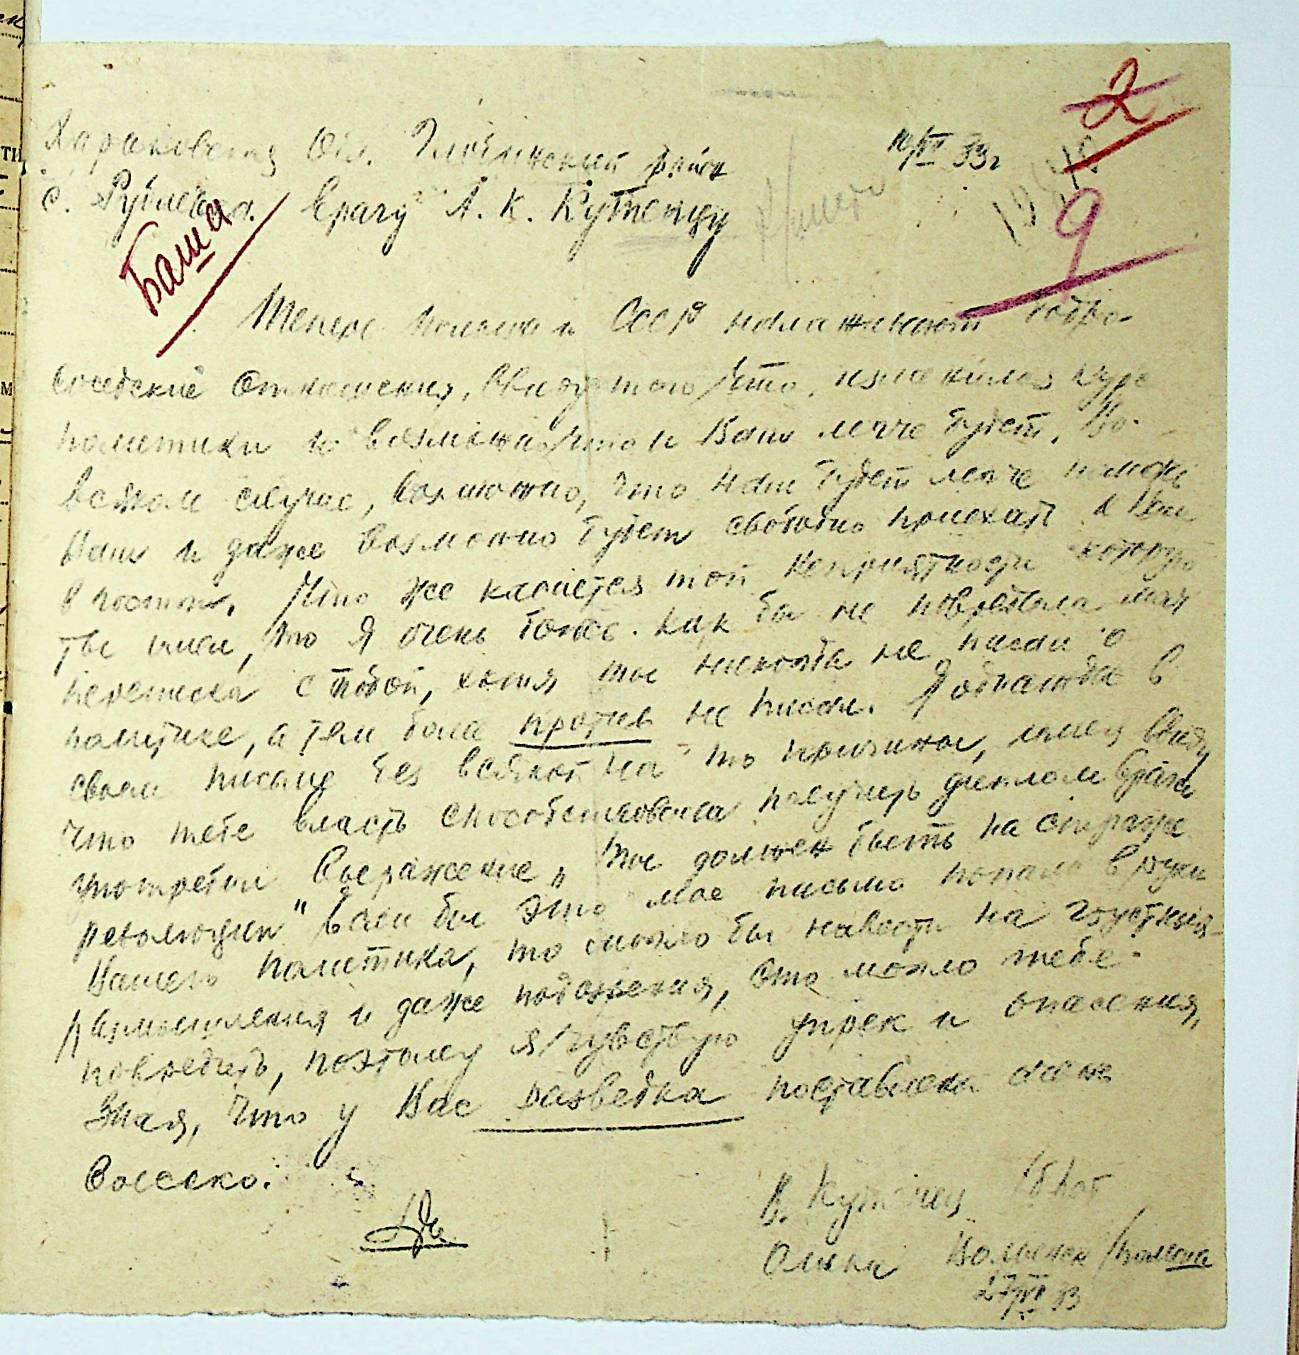 2
Харьковская Обл. Глобинский район
с. Рублевка. Врачу А. К. Кутепцу
Баша
9
Теперь Польша и СССР налаживают добро-
соседские отношения, ввиду того что, изменился курс
политики и возможно что и Вам легче будет. Во
всяком случае, возможно, что нам будет легче
Вам и даже возможно будет свободно приехать к Вам
в гости. Что же касается той неприятности которую
ты имел, то я очень боюсь. Как бы не повредила моя
переписка с тобой, хотя ты никогда не писал о
политике, а тем более против не писал. Я однажды в
своем письме без всякой на то причины, имея ввиду,
что тебе власть способствовала получить диплом врача
употребил выражение „Ты должен быть на страже
революции" Если бы это мое письмо попало в руки
Вашего политика, то смогло бы навести на грустные
размышления и даже подозрения, это могло тебе
повредить, поэтому я чувствую упрек и опасения,
Зная, что у Вас разведка поставлена
высоко.
В.
Олыка Волынск Польша